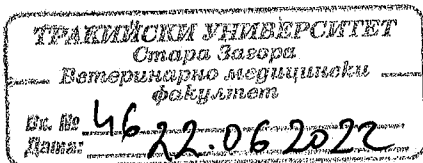 ТРАКИЙСКИ УНИВЕРСИТЕТ
Стара Загора
Ветеринарно медицински
факултет
Вх. № 46
Дата: 22 06 2022